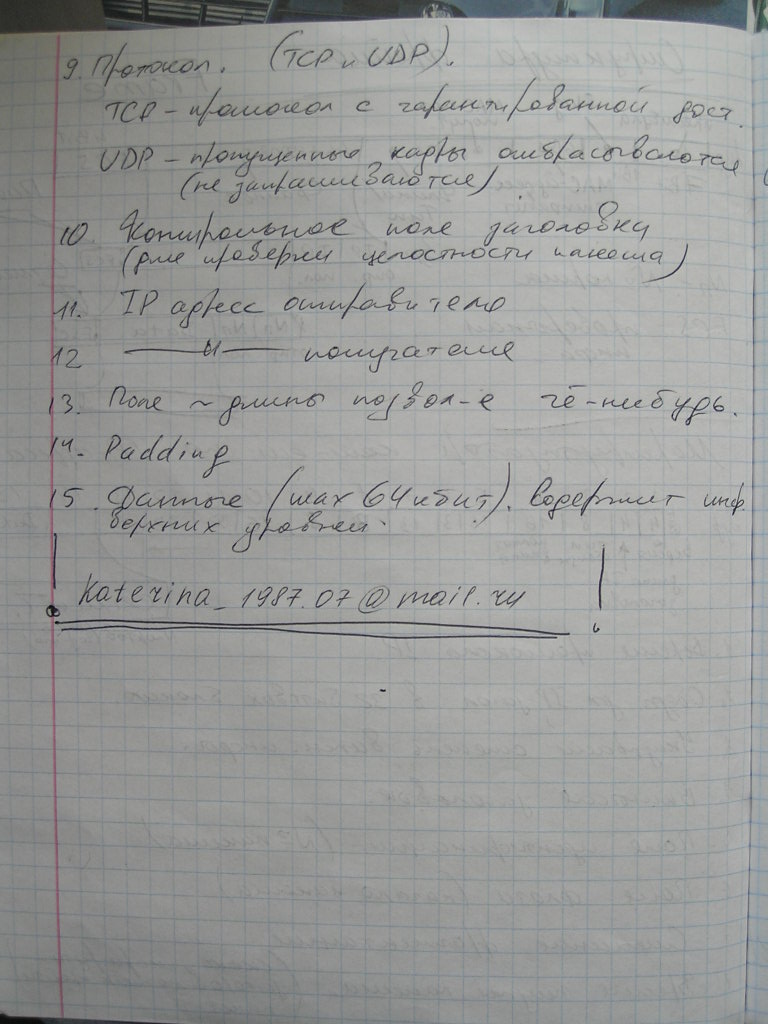 9. Протокол. (TCP и UDP).
TCP – протокол с гарантированной дост.
UDP – пропущенные кадры отбрасываются
(не запрашиваются)
10. Контрольное поле заголовка
(для проверки целостности пакета)
11. IP адрес отправителя
12 —— 〃 —— получателя
13. Поле ~ длины позвол-е чё-нибудь.
14. Padding
15. Данные (max 64 кбит). Содержит инф.
верхних уровней.
katerina_1987.07@mail.ru